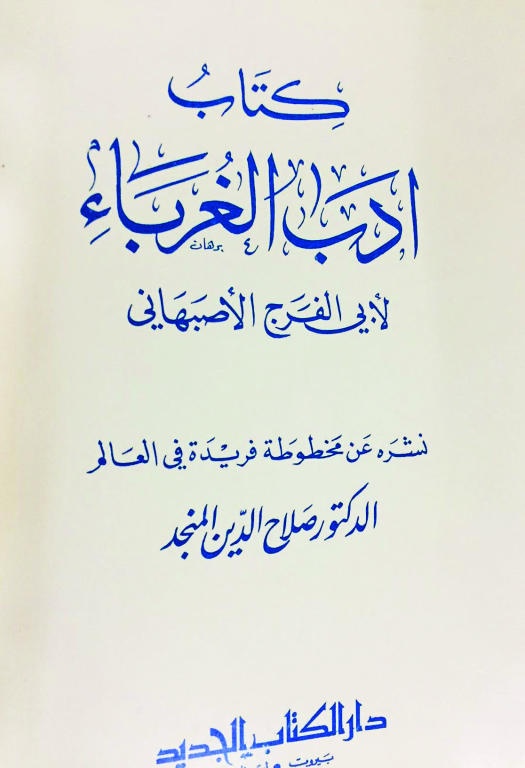 كِتَابُ
ادَبَ الغُرَبَاءِ
برهان
لأبي الفَرَج الأصبَهَاني
نشرَه عَن مَخطوطَة فريْدَة في العَالم
الدكتور صَلاح الدّين المنجد
دار الكتاب الجديد
بيروت